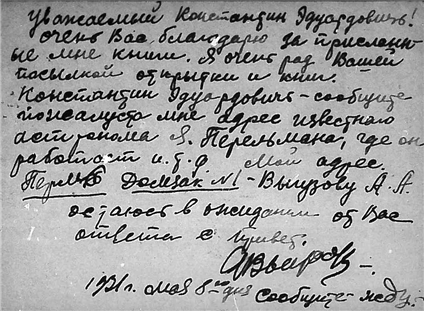 Уважаемый Константин Эдуардовичъ!
очень Вас благодарю за присланн-
ые мне книги. Я очень рад Вашей
посылкой открытки и книг.
Константин Эдуардовичъ - сообщите
пожалуста мне адрес известного
астронома Я. Перельмана, где он
работает и.т.д Мой адрес.
Пермь Домзак №1 - Выгузову А. А.
остаюсь в ожидании от Вас
ответа с привет.
1931г. мая 8-го дня сообщите